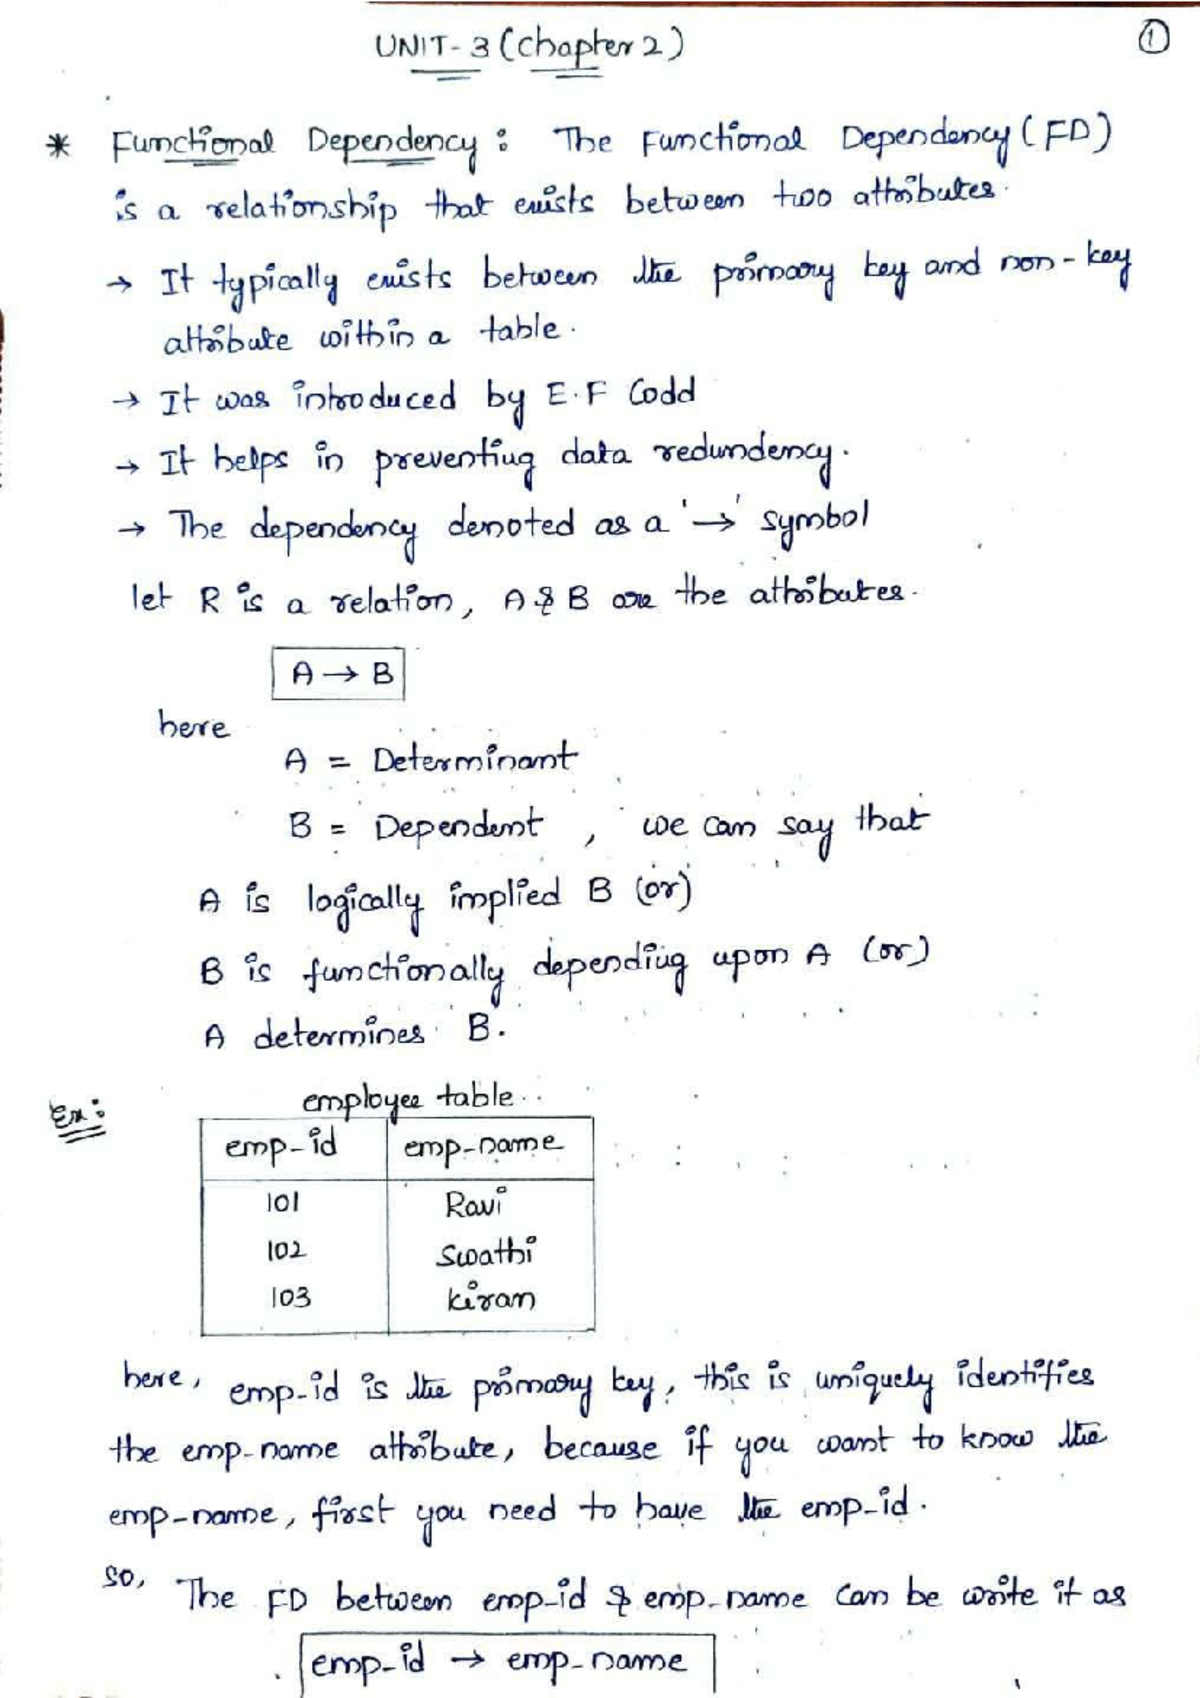 UNIT-3 (chapter 2)
1
* Functional Dependency : The Functional Dependency (FD)
is a relationship that exists between two attributes.
→ It typically exists between the primary key and non-key
attribute within a table.
→ It was introduced by E.F Codd
→ It helps in preventing data redundency.
→ The dependency denoted as a '→' symbol
let R is a relation, A & B are the attributes.
A → B
here
A = Determinant
B = Dependent , we can say that
A is logically implied B (or)
B is functionally depending upon A (or)
A determines B.
Ex:
employee table..
emp-id emp-name
101 Ravi
102 Swathi
103 kiran
here, emp-id is the primary key, this is uniquely identifies
the emp-name attribute, because if you want to know the
emp-name, first you need to have the emp-id.
so, The FD between emp-id & emp-name can be write it as
emp-id → emp-name